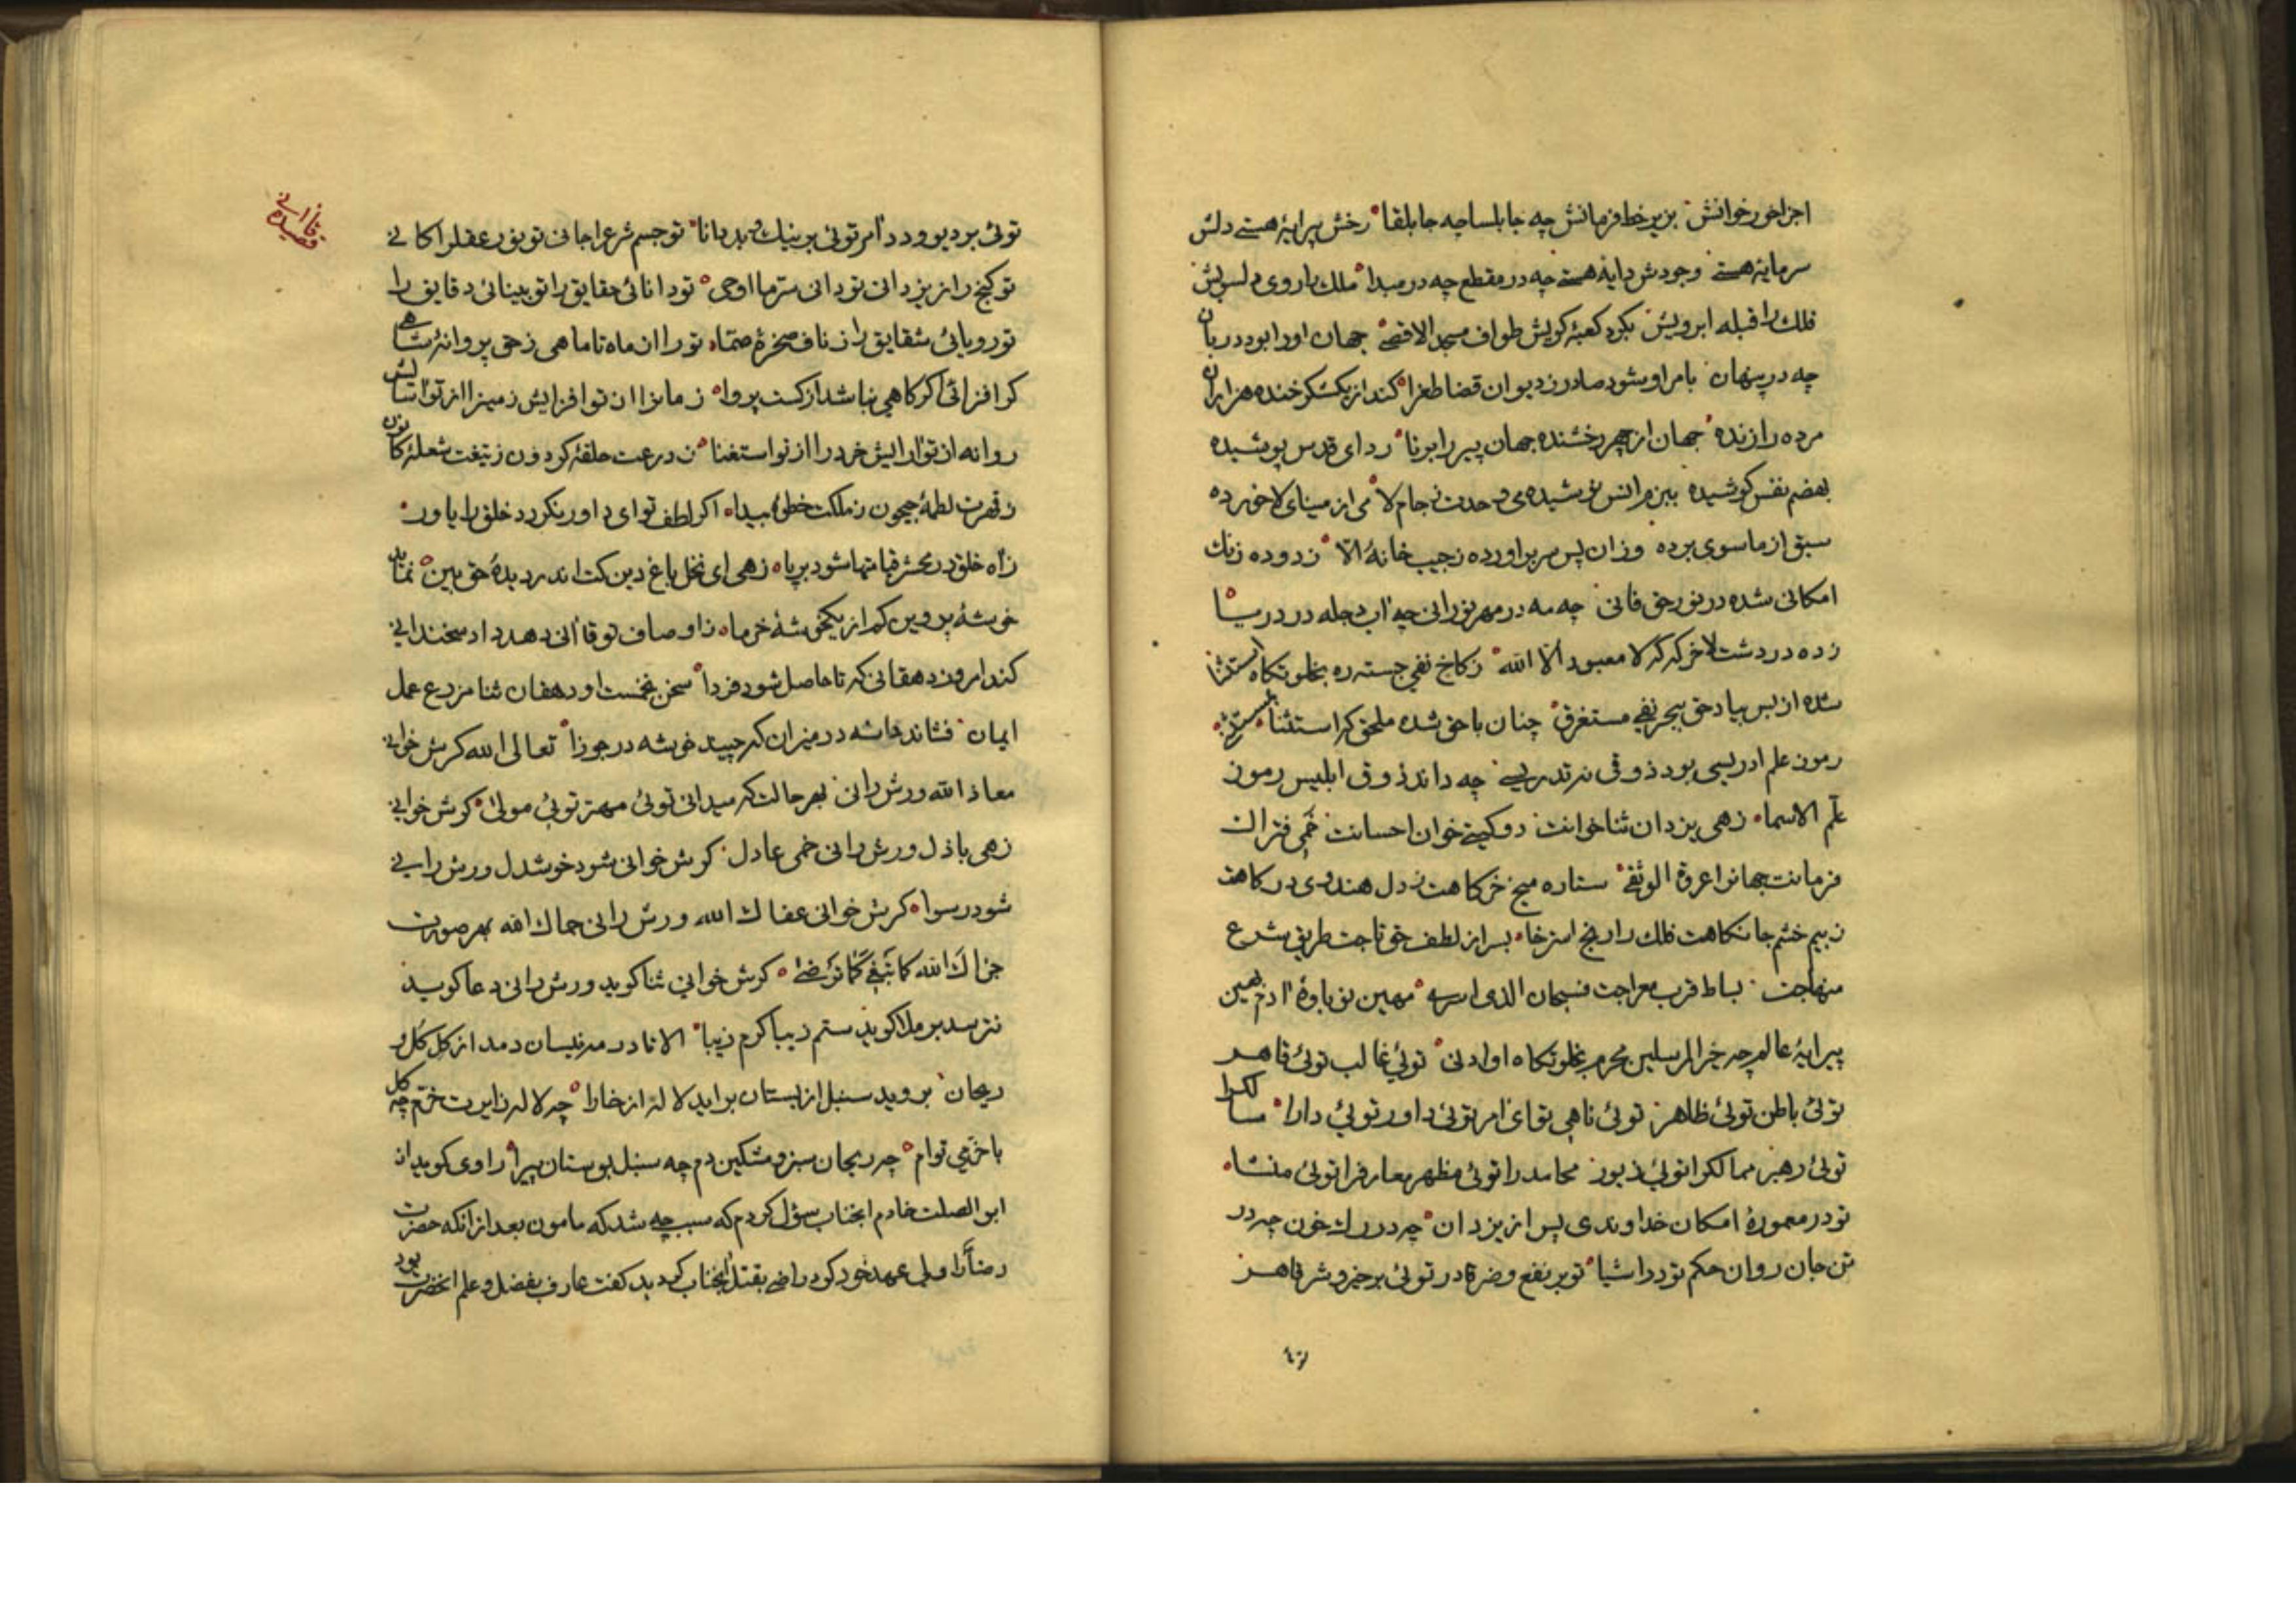 اجزا خور خوانش بزیر خط فرمانش چه جابلسا چه جابلقا رخش پیرایهٔ هستی دلش
سرمایهٔ هستی وجودش دایهٔ هستی چه در مقطع چه در مبدا ملک را روی دل سویش
فلک را قبله ابرویش بکرد کعبهٔ کویش طواف مسجد الاقصی جهان اورا بود دربان
چه در پنهان بامر او شود صادر ز دیوان قضا طغرا کند از یک شکر خنده هزاران
مرده را زنده جهان از چهر رخشنده جهان پیر را برنا ردای قدس پوشیده
بهضم نفس کوشیده ببزم انس نوشیده می وحدت ز جام لا می از مینای لا خورده
سبق از ماسوی برده وزان پس سر براورده ز جیب خانهٔ الا زدوده زنك
امکانی شده در نور حق فانی چه مه در مهر نورانی چه آب دجله در دریا
زده در دشت لا خرکه که لا معبود الا الله ز کاخ نفی جسته ره بخلوتکاه استثنا
شده از بس بیاد حق ببحر نفی مستغرق چنان با حق شده ملحق که استثنا بمستثنی
رموز علم ادریسی بود ذوقی نه تدریسی چه داند ذوق ابلیسی رموز
علّم الاسما زهی یزدان ثناخوانت دو کیتی خوان احسانت خمی فتراک
فرمانت جهانرا عروة الوثقی ستاره میخ خرکاهت زحل هندوی درکاهت
ز بیم خشم جانکاهت فلک را رنج استرخا بسر از لطف حق تاجت طریق شرع
منهاجت بساط قرب معراجت فسبحان الذی اسری مهین نوباوهٔ آدم بهین
پیرایهٔ عالم چه خیر المرسلین محرم بخلوتکاه او ادنی توئی غالب توئی قاهر
توئی باطن توئی ظاهر توئی ناهی توئی امر توئی داور توئی دارا سالکرا
توئی رهبر ممالکرا توئی زیور محامد را توئی مظهر معارفرا توئی منشا
تو در معمورهٔ امکان خداوندی پس از یزدان چه در رک خون چه در
تن جان روان حکم تو در اشیا تو بر نفع و ضر قادر توئی بر خیر و شر قاهر
توئی بر دیو و دد آمر توئی بر نیك و بد دانا تو جسم شرعرا جانی تو نور عقلرا کانی
تو کنج راز یزدانی تو دانی سر ما اوحی تو دانائی حقایق را تو بینائی دقایق را
تو رویائی شقایق را ز ناف صخرهٔ صمّا تو را از ماه تا ماهی ز حق پروانهٔ شاهی
کر افزائی اکر کاهی نباشد از کست پروا زمانرا از تو افزایش زمینرا از تو آسایش
روانه از تو آرایش خرد را از تو استغنا ز درعت حلقهٔ کردون ز تیغت شعلهٔ کانون
ز قهرت لطمهٔ جیحون ز ملکت خطهٔ بیدا اکر لطف تو ای داور نکردد خلق را یاور
ز آه خلق در محشر قیامتها شود برپا زهی ای نخل باغ دین کت اندر دیدهٔ حق بین نماید
خوشهٔ پروین کم از یک خوشهٔ خرما ز اوصاف تو قاآنی دهد داد سخندانی
کند امروز دهقانی که تا حاصل شود فردا سخن تخمست او دهقان ثنا مزرع عمل
ایمان فشاند دانه در میزان که چیند خوشه در جوزا تعالی الله کرش خوانی
معاذ الله ورش رانی بهر حالت که میدانی توئی مهتر توئی مولی کرش خوانی
زهی باذل ورش رانی خهی عادل کرش خوانی شود خوشدل ورش رانی
شود رسوا کرش خوانی عفاك الله ورش رانی حماك الله بهر صورت
جزاك الله کما تبغی کما ترضی کرش خوانی ثنا کوید ورش رانی دعا کوید
نترسد بر ملا کوید ستم زیبا کرم زیبا الا تا در مه نیسان دمد از کل کل و
ریحان بروید سنبل از بستان براید لاله از خارا چه لاله زایرت خرم چه کل
با خرمی توام چه ریحان سبز و مشکین دم چه سنبل بوستان پیرا راوی کوید از
ابو الصلت خادم انجناب سؤال کردم که سبب چه شد که مامون بعد از انکه حضرت
رضا را ولی عهد خود کرد راضی بقتل انجناب کردید کفت عارف بفضل و علم انحضرت بود
قاآنی
قصیده